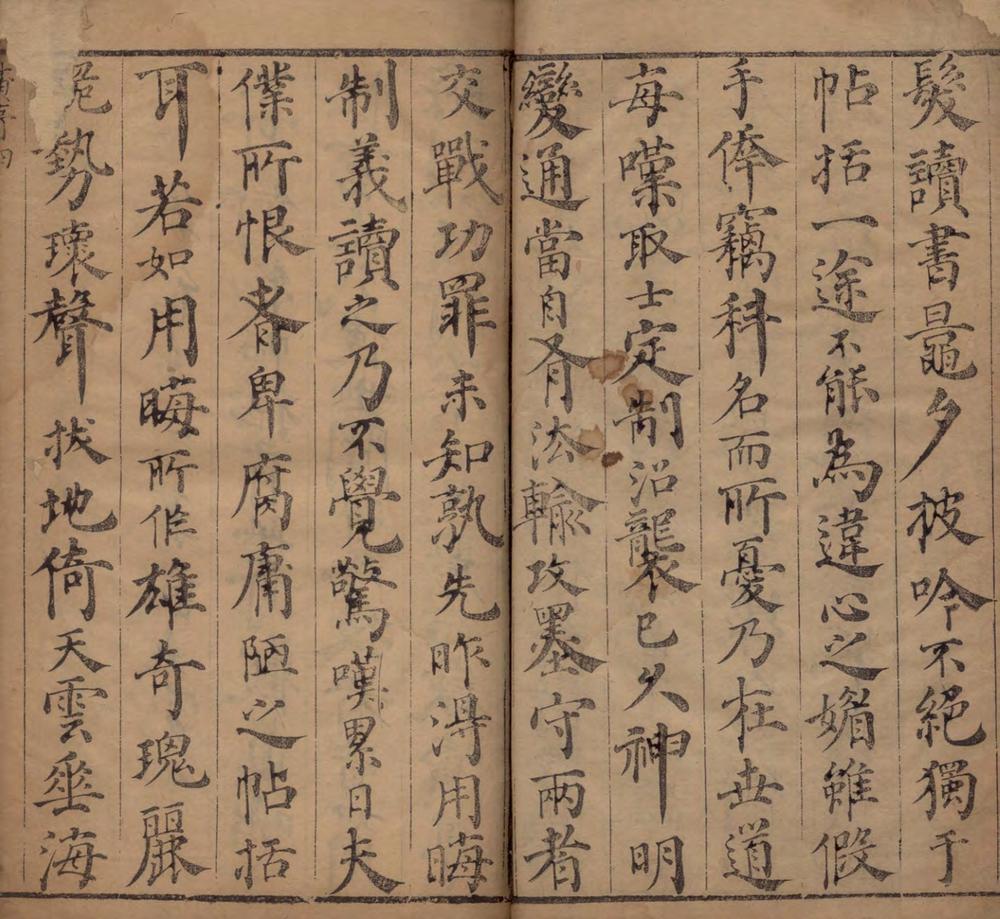 髮讀書鼂夕披吟不絕獨于
帖括一途不能為違心之媚雖假
手倖竊科名而所憂乃在世道
每嘆取士定制沿襲已久神明
變通當自有法輸攻墨守兩者
交戰功罪未知孰先昨得用晦
制義讀之乃不覺驚嘆累日夫
僕所恨者卑腐庸陋之帖括
耳若如用晦所作雄奇瑰麗
詭勢瓌聲拔地倚天雲垂海
序四